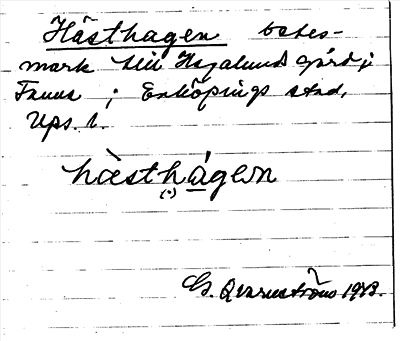 Hästhagen betes-
mark till Hagalund gård i
Fanna ; Enköpings stad,
Ups. l.
hàsthágen
(°)
G. Qvarnström 1973.